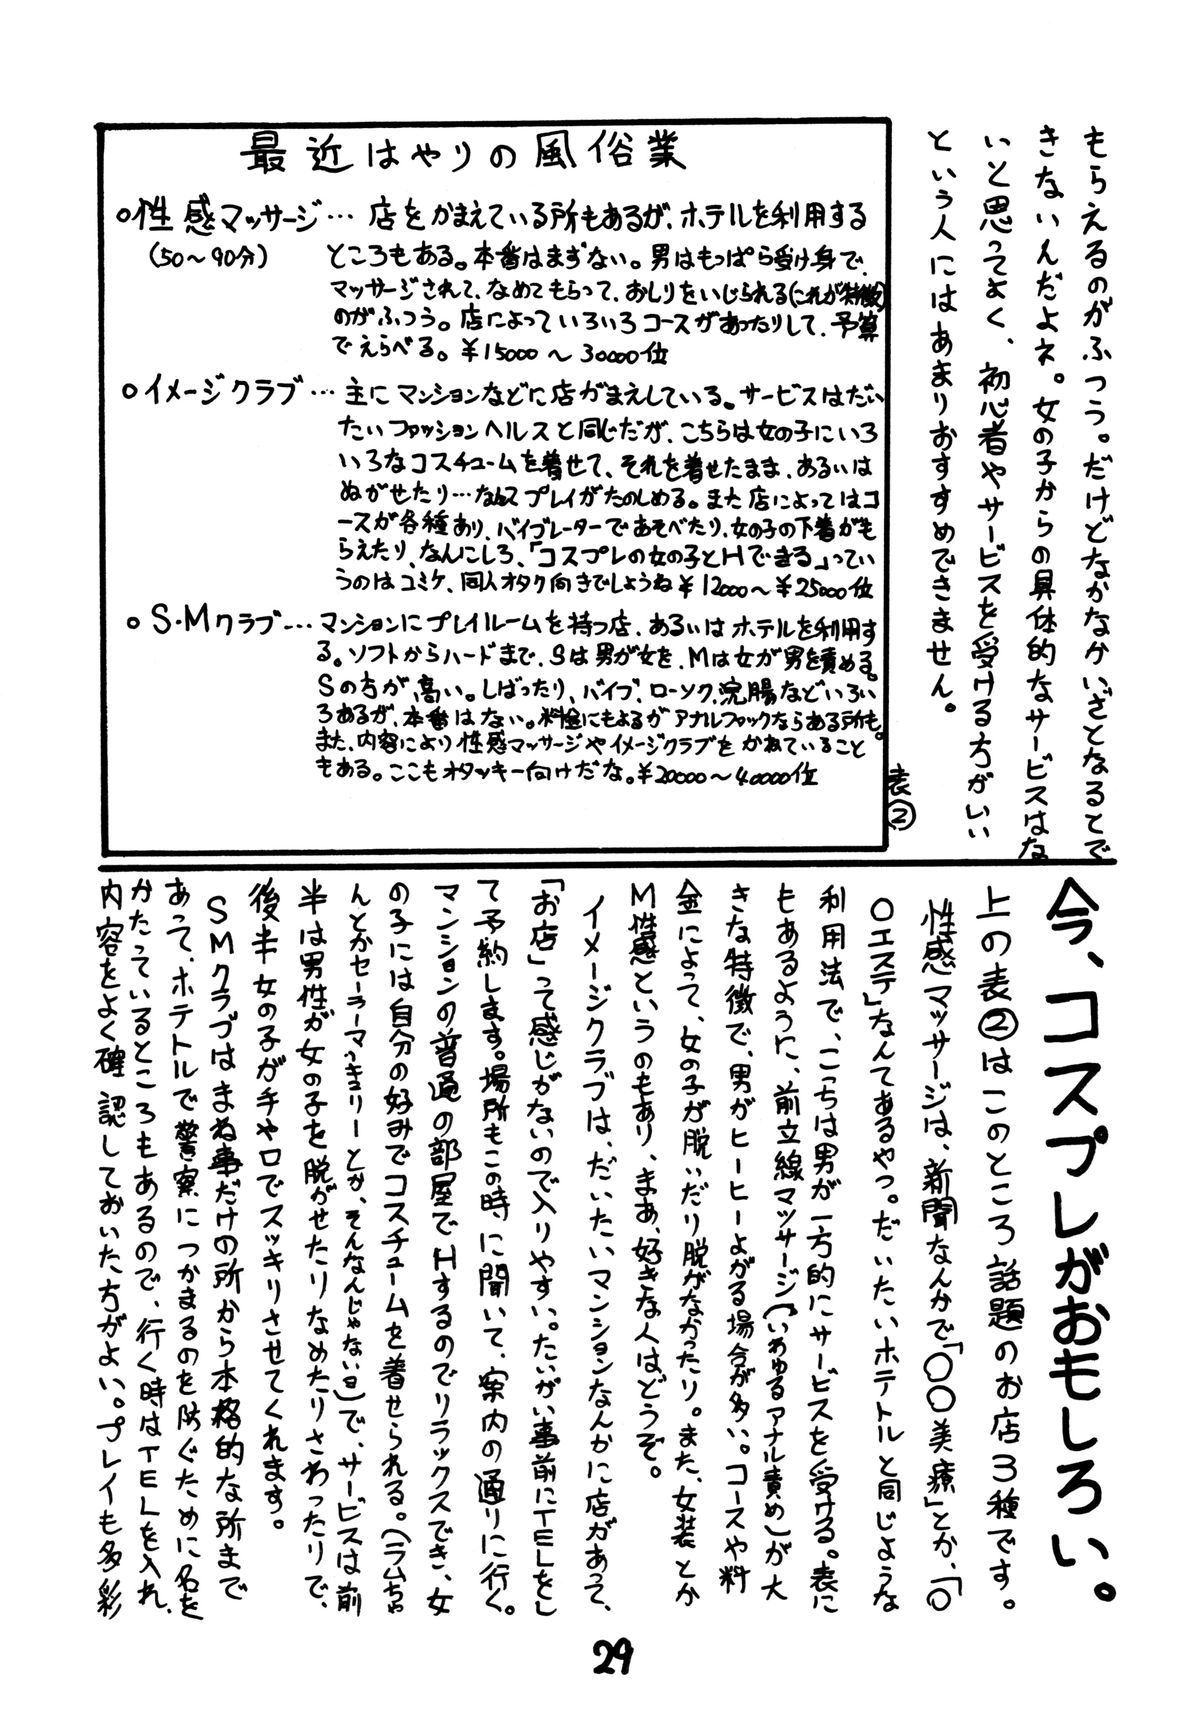 もらえるのがふつう。だけどなかなかいざとなるとで
きないんだよネ。女の子からの具体的なサービスはな
いと思ってよく、初心者やサービスを受ける方がいい
という人にはあまりおすすめできません。
最近はやりの風俗業
○性感マッサージ… 店をかまえている所もあるが、ホテルを利用する
(50〜90分)
ところもある。本番はまずない。男はもっぱら受け身で、
マッサージされて、なめてもらって、おしりをいじられる(これが特徴)
のがふつう。店によっていろいろコースがあったりして、予算
でえらべる。¥15000〜30000位
○イメージクラブ… 主にマンションなどに店がまえしている。サービスはだい
たいファッションヘルスと同じだが、こちらは女の子にいろ
いろなコスチュームを着せて、それを着せたまま、あるいは
ぬがせたり…なんてプレイがたのしめる。また店によってはコ
ースが各種あり、バイブレーターであそべたり、女の子の下着がも
らえたり、なんにしろ、「コスプレの女の子とHできる」ってい
うのはコミケ、同人オタク向きでしょうね¥12000〜¥25000位
○S・Mクラブ… マンションにプレイルームを持つ店、あるいはホテルを利用す
る。ソフトからハードまで、Sは男が女を、Mは女が男を責める。
Sの方が、高い。しばったり、バイブ、ローソク、浣腸などいろい
ろあるが、本番はない。料金にもよるがアナルファックならある所も。
また、内容により性感マッサージやイメージクラブをかねていること
もある。ここもオタッキー向けだな。¥20000〜40000位
表②
今、コスプレがおもしろい。
上の表②はこのところ話題のお店3種です。
性感マッサージは、新聞なんかで「○○美療」とか、「○
○エステ」なんてあるやつ。だいたいホテトルと同じような
利用法で、こっちは男が一方的にサービスを受ける。表に
もあるように、前立線マッサージ(いわゆるアナル責め)が大
きな特徴で、男がヒーヒーよがる場合が多い。コースや料
金によって、女の子が脱いだり脱がなかったり。また、女装とか
M性感というのもあり、まあ、好きな人はどうぞ。
イメージクラブは、だいたいマンションなんかに店があって、
「お店」って感じがないので入りやすい。たいがい事前にTELをし
て予約します。場所もこの時に聞いて、案内の通りに行く。
マンションの普通の部屋でHするのでリラックスでき、女
の子には自分の好みでコスチュームを着せられる。(ラムちゃ
んとかセーラーマーキュリーとか、そんなんじゃない)で、サービスは前
半は男性が女の子を脱がせたりなめたりさわったりで、
後半女の子が手や口でスッキリさせてくれます。
SMクラブはまね事だけの所から本格的な所まで
あって、ホテトルで警察につかまるのを防ぐために名を
かたっているところもあるので、行く時はTELを入れ、
内容をよく確認しておいた方がよい。プレイも多彩
29